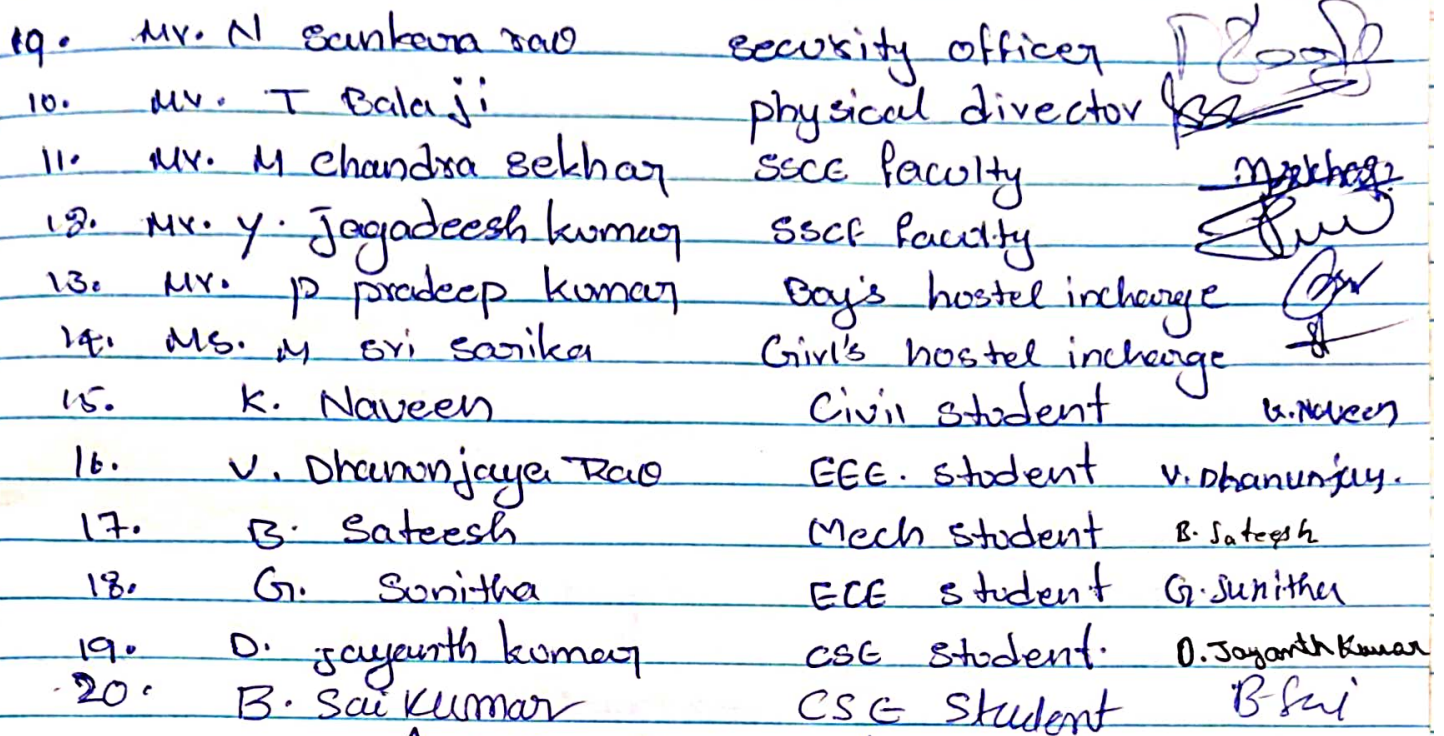 19. Mr. N Sankara rao security officer
10. Mr. T Balaji physical director
11. Mr. M Chandra sekhar SSCE faculty
12. Mr. Y. Jagadeesh kumar SSCE faculty
13. Mr. P pradeep kumar Boy's hostel incharge
14. Ms. M sri sarika Girl's hostel incharge
15. K. Naveen Civil student K.Naveen
16. V. Dhanonjaya Rao EEE. student V. Dhanunjay.
17. B. Sateesh Mech student B. Sateesh
18. G. Sunitha ECE student G. Sunitha
19. D. jayanth kumar CSE student. D. Jayanth Kumar
20. B. Sai Kumar CSE Student B Sai